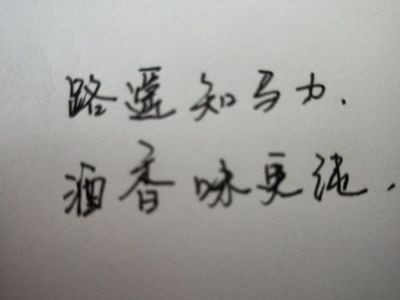 路遥知马力.
酒香味更纯.